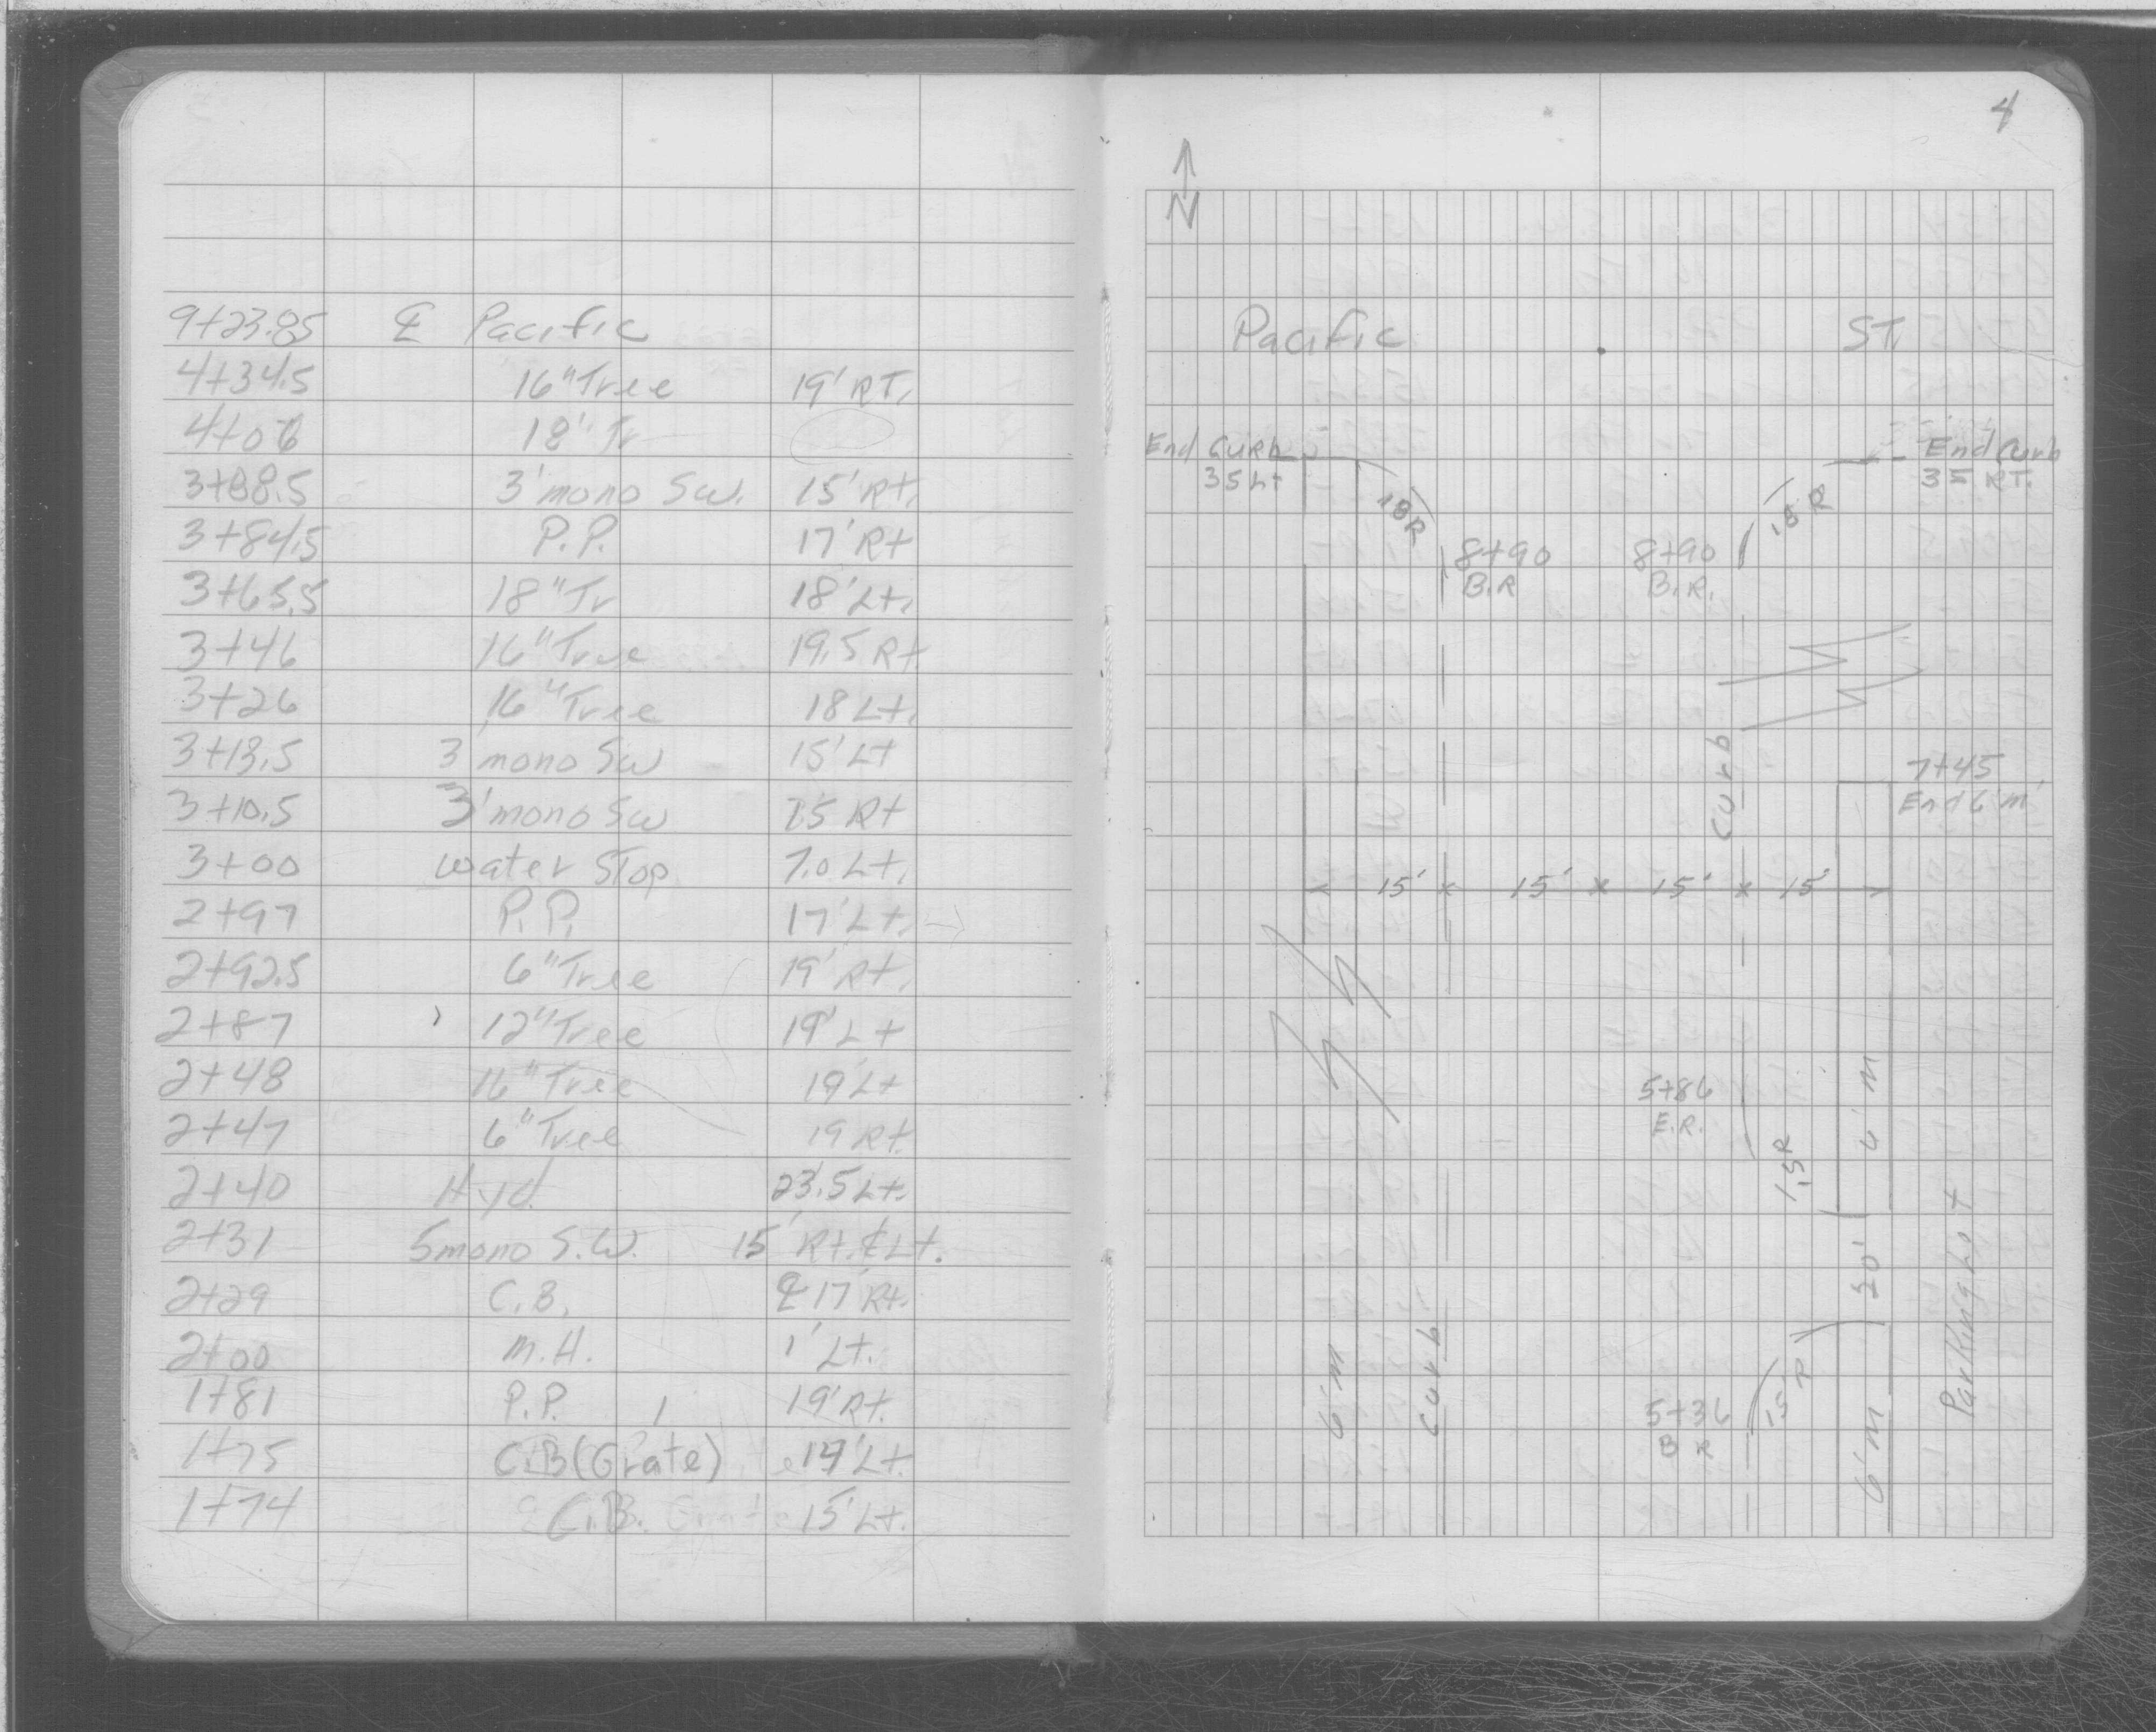 9+23.85 ℄ Pacific
4+34.5 16" Tree 19' RT.
4+06 18" Tr
3+88.5 3' mono Sw. 15' Rt.
3+84.5 P.P. 17' Rt
3+65.5 18" Tr 18' Lt.
3+46 16" Tree 19.5 Rt
3+26 16" Tree 18 Lt.
3+13.5 3 mono Sw 15' Lt
3+10.5 3' mono Sw 15 Rt
3+00 water Stop 7.0 Lt.
2+97 P.P. 17' Lt.
2+92.5 6" Tree 19' Rt.
2+87 12" Tree 19' Lt
2+48 16" Tree 19' Lt
2+47 6" Tree 19 Rt.
2+40 Hyd. 23.5 Lt.
2+31 5 mono S.W. 15' Rt. & Lt.
2+29 C.B. ℄ 17' Rt.
2+00 M.H. 1' Lt.
1+81 P.P. 19' Rt.
1+75 C.B (Grate) 14' Lt.
1+74 C.B. 15' Lt.
4
N
Pacific ST.
End Curb
35 Lt
End Curb
35 RT.
18 R
18 R
8+90
B.R
8+90
B.R.
Curb
7+45
End 6' m
15' 15' 15' 15'
5+86
E.R.
15 R
6' M
50'
Parking Lot
6' M
Curb
5+36
B R
15 R
6' M